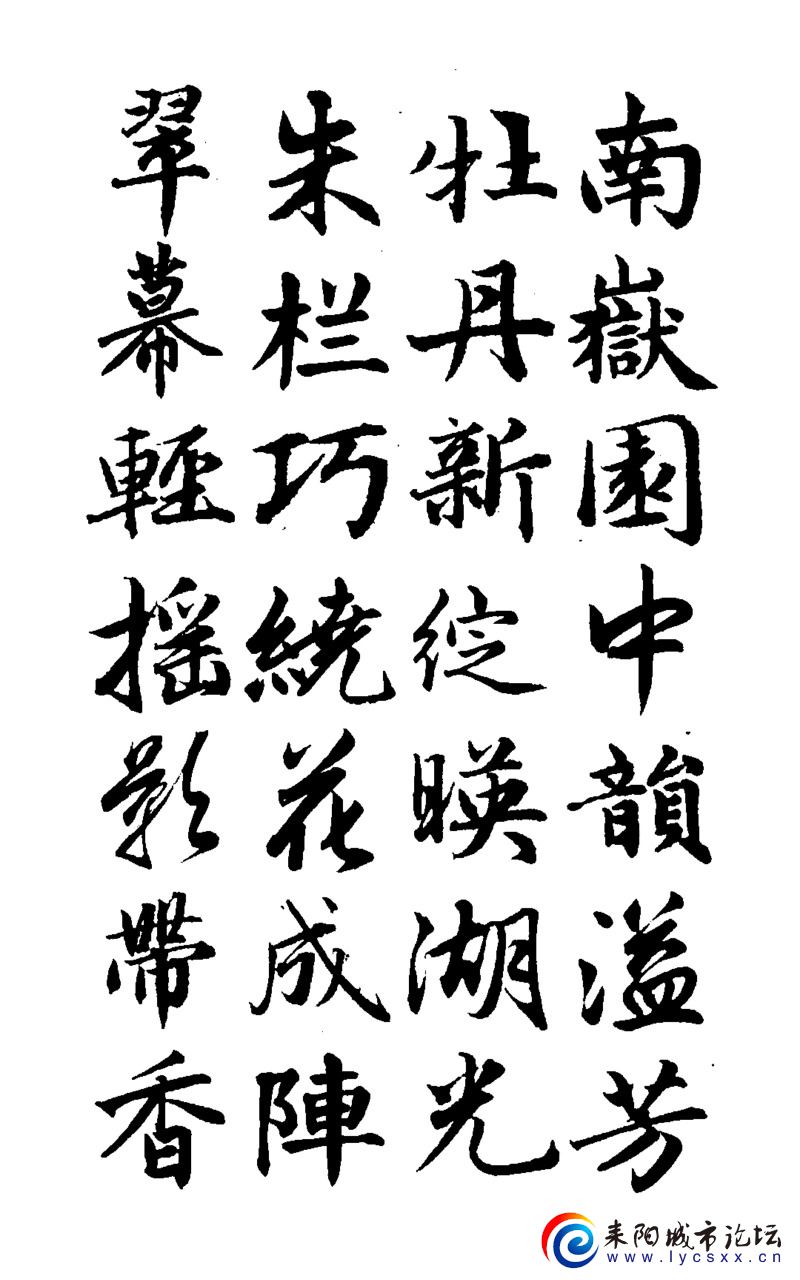 南嶽園中韻溢芳
牡丹新綻暎湖光
朱栏巧繞花成陣
翠幕輕摇影帶香
耒阳城市论坛
www.lycsxx.cn